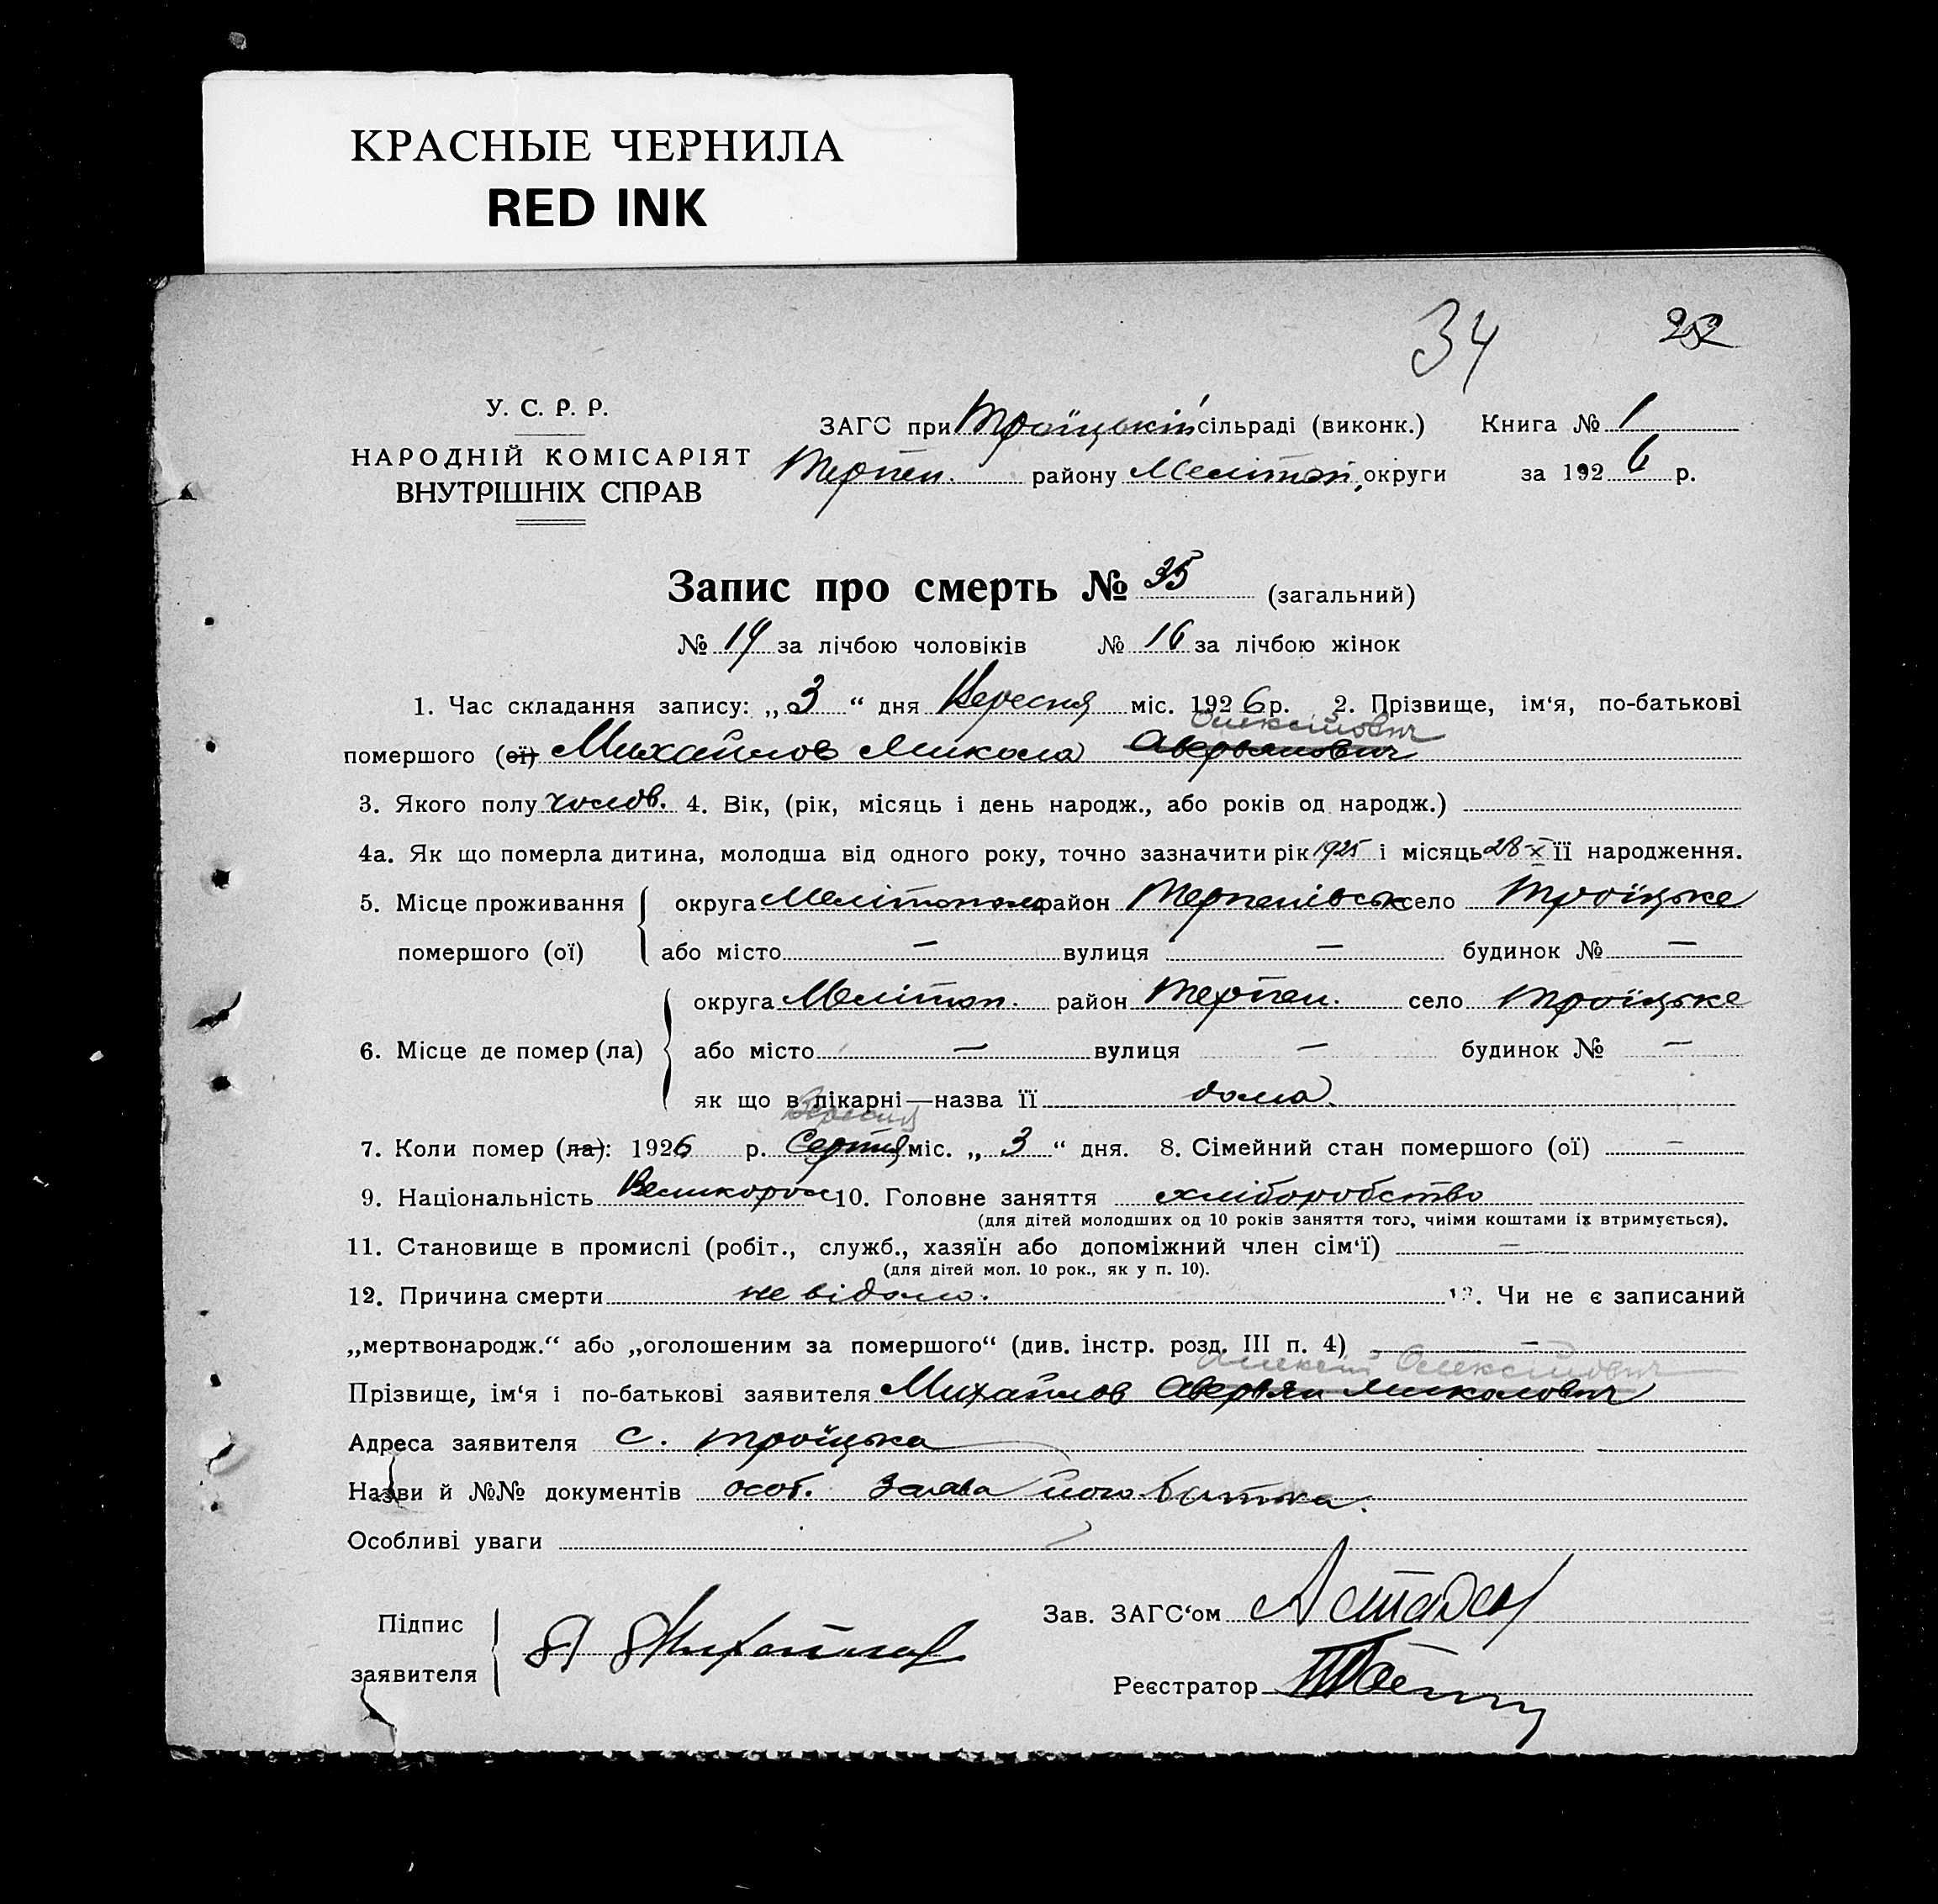 КРАСНЫЕ ЧЕРНИЛА
RED INK
34
У. С. Р. Р.
НАРОДНІЙ КОМІСАРІЯТ
ВНУТРІШНІХ СПРАВ
ЗАГС при Троїцькій сільраді (виконк.) Книга № 1
Терпен. району Мелітоп. округи за 1926 р.
Запис про смерть № 35 (загальний)
№ 19 за лічбою чоловіків № 16 за лічбою жінок
1. Час складання запису: „3“ дня Вересня міс. 1926 р. 2. Прізвище, ім‘я, по-батькові
Олексійович
помершого (ої) Михайлов Микола Аверьянович
3. Якого полу чолов. 4. Вік, (рік, місяць і день народж., або років од народж.)
4а. Як що померла дитина, молодша від одного року, точно зазначити рік 1925 і місяць 28-X її народження.
5. Місце проживання помершого (ої) округа Мелітополь район Терпенівськ село Троїцьке
або місто — вулиця — будинок № —
6. Місце де помер (ла) округа Мелітоп. район Терпен. село Троїцьке
або місто — вулиця — будинок № —
як що в лікарні—назва її дома.
Вересня
7. Коли помер (ла): 1926 р. Серпня міс. „3“ дня. 8. Сімейний стан помершого (ої) —
9. Національність Великорос 10. Головне заняття хліборобство
(для дітей молодших од 10 років заняття того, чиїми коштами їх втримується).
11. Становище в промислі (робіт., служб., хазяїн або допоміжний член сім‘ї) —
(для дітей мол. 10 рок., як у п. 10).
12. Причина смерти не відомо. 13. Чи не є записаний
„мертвонародж.“ або „оголошеним за помершого“ (див. інстр. розд. III п. 4) —
Олексій Олексійович
Прізвище, ім‘я і по-батькові заявителя Михайлов Аверьян Миколович
Адреса заявителя с. Троїцька
Назви й №№ документів особ. заява його батька.
Особливі уваги
Підпис заявителя Михайлов
Зав. ЗАГС‘ом
Реєстратор